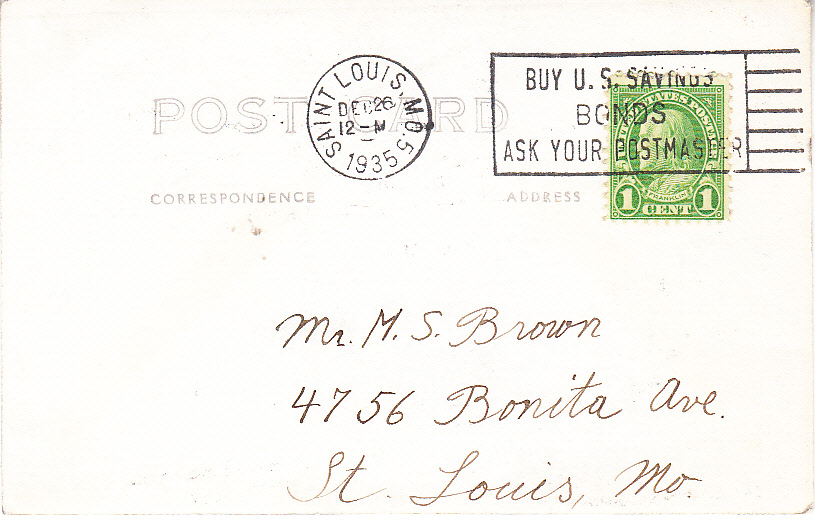 POST CARD
SAINT LOUIS, MO.
DEC 26
12 M
1935
5
BUY U. S. SAVINGS
BONDS
ASK YOUR POSTMASTER
UNITED STATES POSTAGE
FRANKLIN
1 CENT 1
CORRESPONDENCE
ADDRESS
Mr. M. S. Brown
4756 Bonita Ave.
St. Louis, Mo.